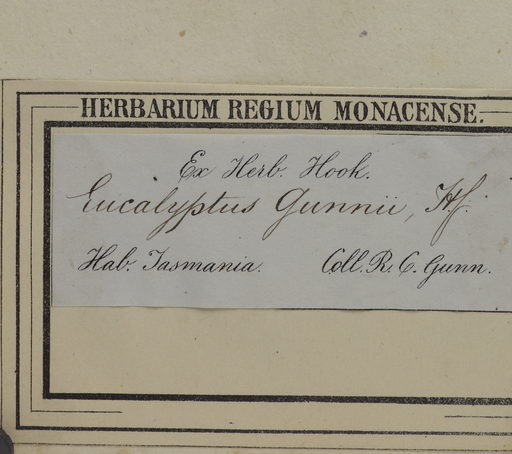 HERBARIUM REGIUM MONACENSE.
Ex Herb. Hook.
Eucalyptus Gunnii, Hf.
Hab. Tasmania. Coll. R. C. Gunn.